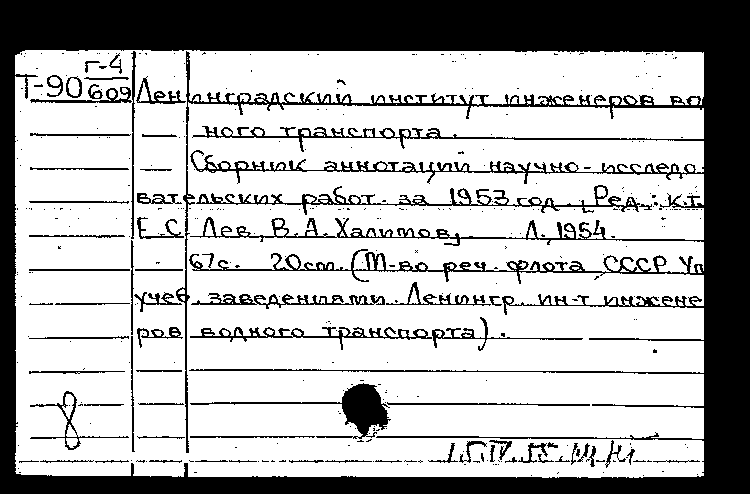 Г-4
Т-90 609 Ленинградский институт инженеров вод
ного транспорта.
— Сборник аннотаций научно-исследо-
вательских работ за 1953 год. [Ред.: к.т.
Е.С. Лев, В.А. Халитов]. Л., 1954.
67с. 20см. (М-во реч. флота СССР. Уп
учеб. заведениями. Ленингр. ин-т инжене
ров водного транспорта).
8
15.IV.55.